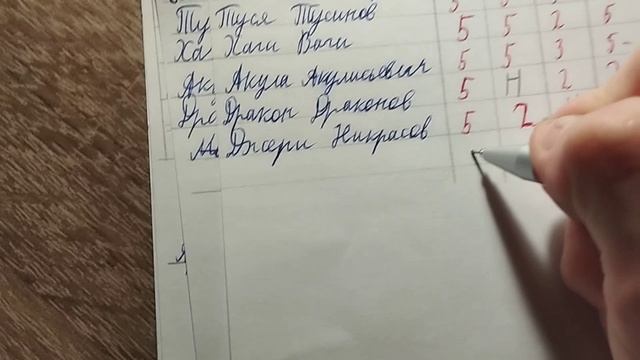 Ту Туся Тусинов 5 5 2 5
Ха Хаги Ваги 5 5 3 5-
Ак Акула Акулисьевич 5 Н 2
Дро Дракон Драконов 5 2
Ма Джери Никрасов